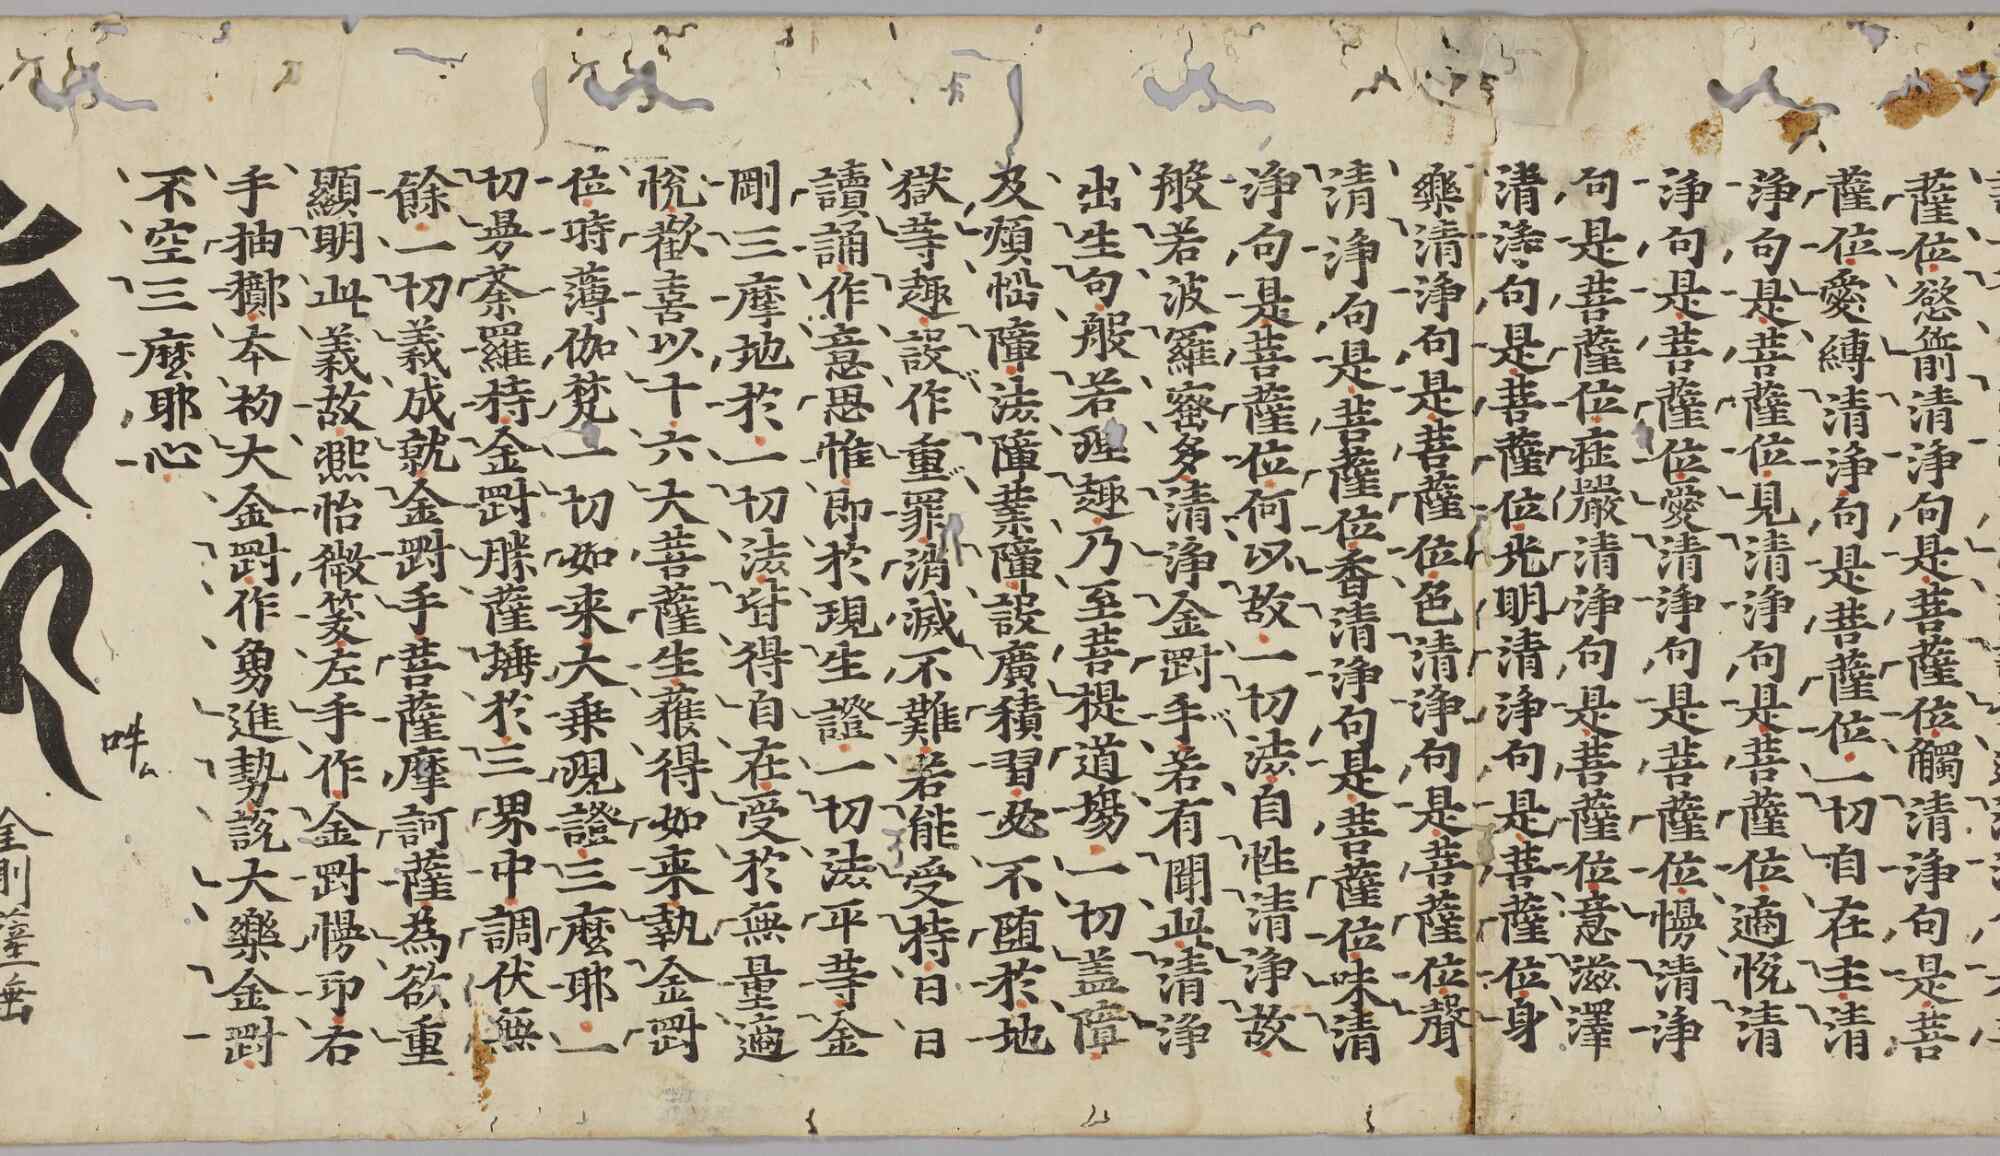 薩位慾箭清浄句是菩薩位觸清浄句是菩
薩位愛縛清浄句是菩薩位一切自在主清
浄句是菩薩位見清浄句是菩薩位適悦清
浄句是菩薩位愛清浄句是菩薩位慢清浄
句是菩薩位莊嚴清浄句是菩薩位意滋澤
清浄句是菩薩位光明清浄句是菩薩位身
樂清浄句是菩薩位色清浄句是菩薩位聲
清浄句是菩薩位香清浄句是菩薩位味清
浄句是菩薩位何以故一切法自性清浄故
般若波羅蜜多清浄金剛手若有聞此清浄
出生句般若理趣乃至菩提道場一切盖障
及煩惱障法障業障設廣積習必不墮於地
獄等趣設作重罪消滅不難若能受持日日
讀誦作意思惟即於現生證一切法平等金
剛三摩地於一切法皆得自在受於無量適
悦歡喜以十六大菩薩生獲得如来執金剛
位時薄伽梵一切如来大乗現證三麽耶一
切曼荼羅持金剛勝薩埵於三界中調伏無
餘一切義成就金剛手菩薩摩訶薩為欲重
顯明此義故熈怡微笑左手作金剛慢印右
手抽擲本初大金剛作勇進勢説大樂金剛
不空三麽耶心
吽
金剛薩埵